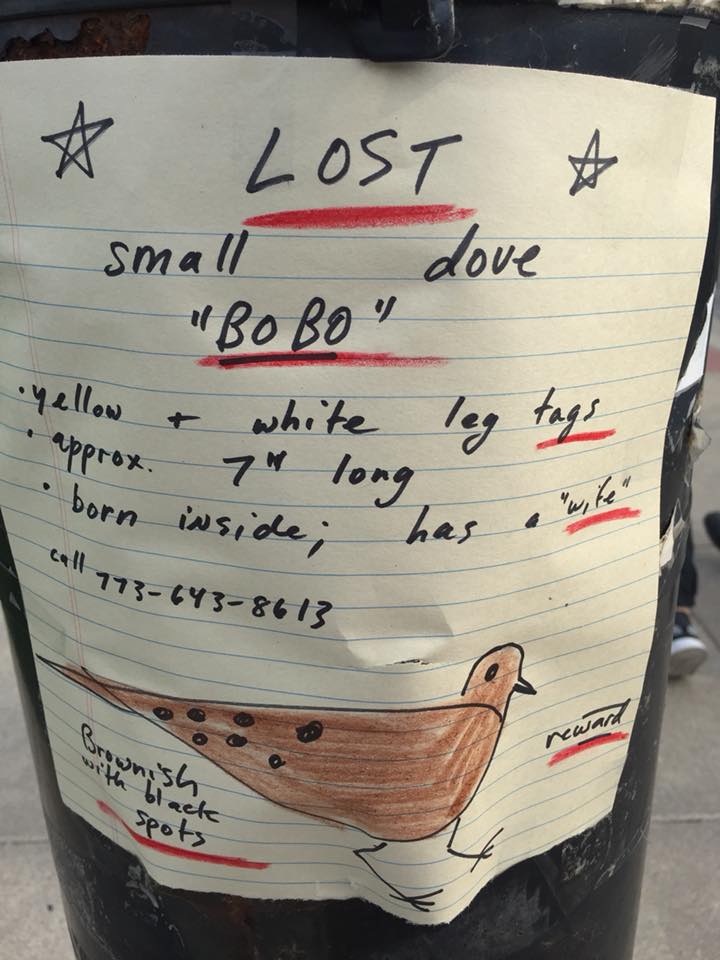 LOST
small dove
"BOBO"
• yellow + white leg tags
• approx. 7" long
• born inside; has a "wife"
call 773-643-8613
reward
Brownish
with black
spots